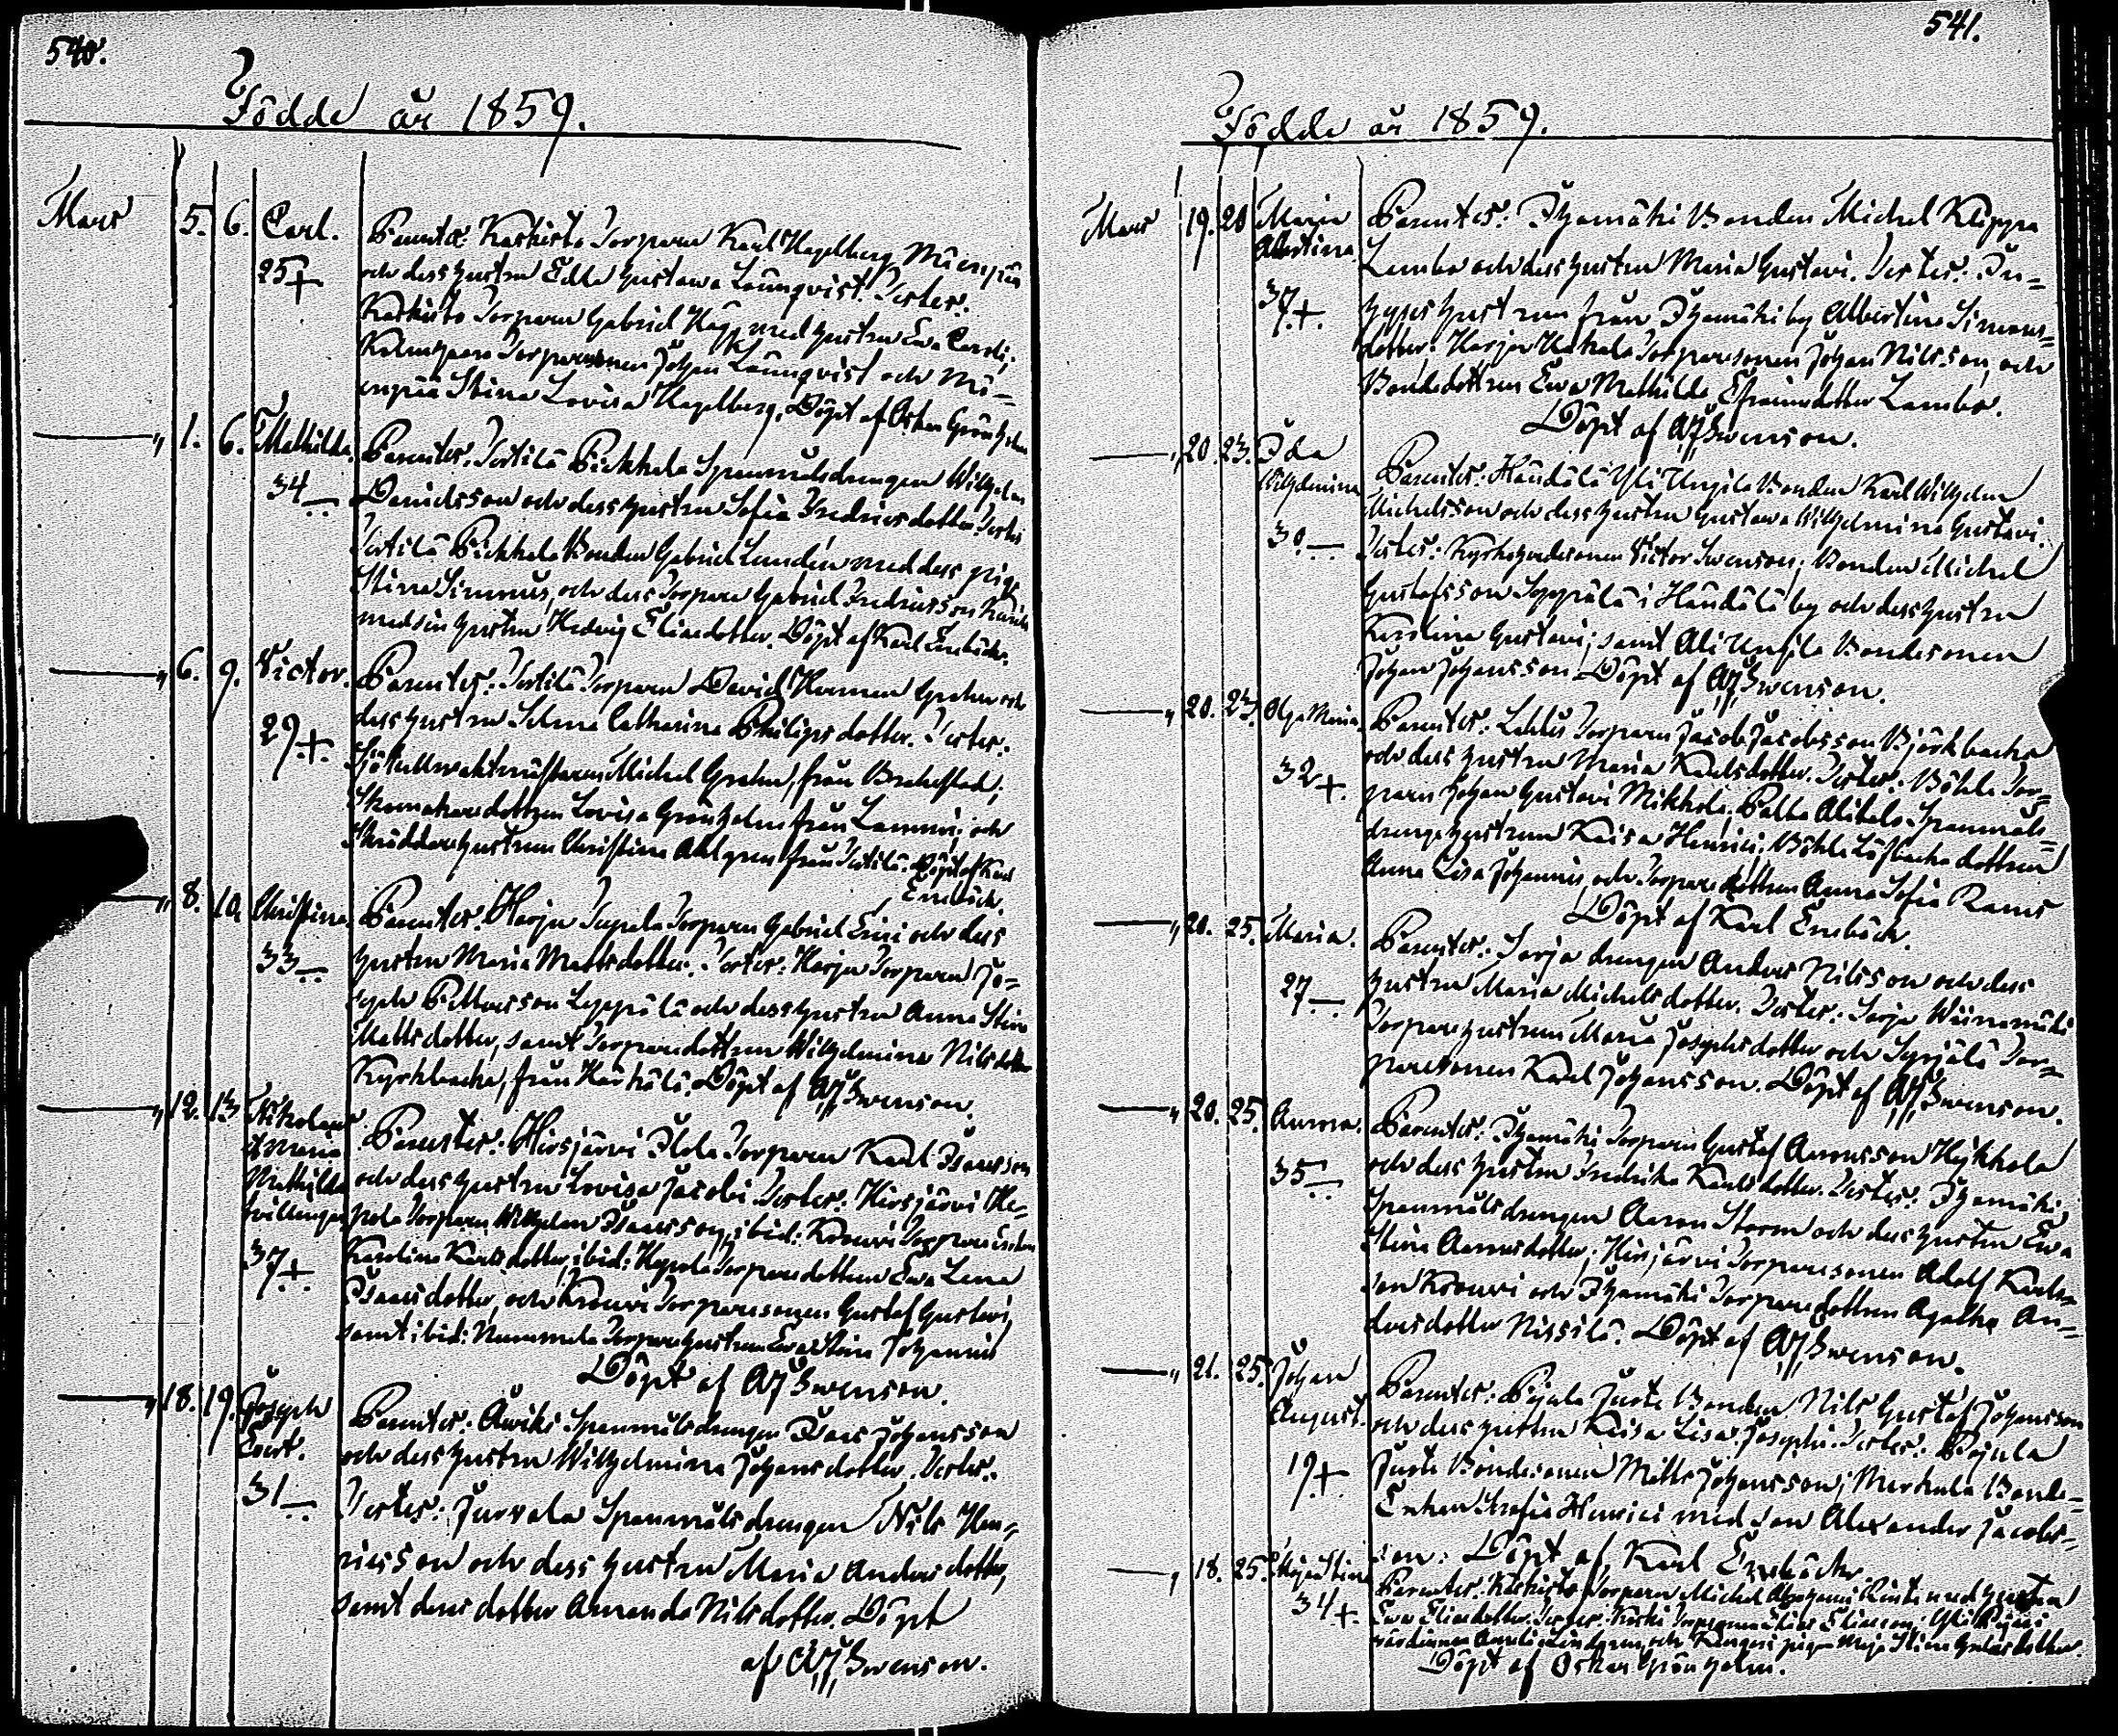 540.
Födde år 1859.
Mars 5. 6. Carl. Parentes: Karkisto Torparen Karl Hagelberg Mäenpää
25+ och dess hustru Edla Gustawa Launqvist. Testes:
Karkisto Torparen Gabriel Hägg med hustru Eva Caroli,
Torparesonen Johan Launqvist och Mä-
enpää Stina Lovisa Hagelberg. Döpt af Oskar Grönholm
" 1. 6. Mathilda. Parentes: Tertilä Pickhala Spanmålsdrengen Wilhelm
34 Davidsson och dess hustru Sofia Fredricsdotter. Testes:
Tertilä Pickhala Bonden Gabriel Lundén med dess piga
Stina Simmus, och dess Torpare Gabriel Fredriksson
med sin hustru Hedvig Eliaedotter. Döpt af Karl Enebäck.
" 6. 9. Victor. Parentes: Tertilä Torparen David Herman Grehn och
29+ dess hustru Selma Catharina Philipsdotter. Testes:
Michel Grehn, från Brahestad;
Skomakaredottren Lovisa Grönholm från Lammi; och
Skräddarehustrun Christina Ahlgren från Tertilä. Döpt af Karl
Enebäck.
" 8. 10. Christina. Parentes: Harju Supala Torparen Gabriel Erici och dess
33 hustru Maria Mattsdotter. Testes: Harju Torparen Jo-
seph Pettersson Leppälä och dess hustru Anna Stina
Mattsdotter, samt Torparedottren Wilhelmina Nilsdotter
Kyrkbacka, från Härkälä. Döpt af A J Swenson.
" 12. 13 Nikolaus
et Maria Parentes: Hirsjärvi Ilola Torparen Karl Isaksson
Mathilda och dess hustru Lovisa Jacobi. Testes: Hirsjärvi He-
tvillingar pola Torparen Wilhelm Isaaksson, ibid: Krouvi Torpare Enkan
37+ Karolina Karlsdotter, ibid: Hepola Torparedottren Eva Lena
Isaaksdotter, och Krouvi Torparesonen Gustaf Gustavi,
samt ibid: Nummela Torparehustrun Eva Stina Johannis
Döpt af A J Swenson.
" 18. 19. Joseph Parentes: Awiks Spanmålsdrengen Isaac Johansson
Evert. och dess hustru Wilhelmina Johansdotter. Testes:
31 Testes: Jurvala Spanmålsdrengen Nils Hen-
ricsson och dess hustru Maria Andersdotter,
samt deras dotter Amanda Nilsdotter. Döpt
af A J Swenson.
541.
Födde år 1859.
Mars 19. 20 Maria Parentes: Ihamäki Bonden Michel Klippa
Albertina Lembo och dess hustru Maria Gustavi. Testes: In-
37+ hyses hustrun från Ihamäki by Albertina Simons-
dotter; Harju Hakala Torparesonen Johan Nilsson, och
Bondedottren Eva Mathilda Efraimsdotter Lembo.
Döpt af A J Swenson.
" 20. 23. Ida Parentes: Haudälä Yli Unjila Bonden Karl Wilhelm
Wilhelmina Michelsson och dess hustru Gustawa Wilhelmina Gustavi.
30 Testes: Kyrkoherdesonen Victor Swenson; Bonden Michel
Gustafsson Seppälä i Haudälä by och dess hustru
Karolina Gustavi; samt Ali Unjila Bondesonen
Johan Johansson. Döpt af A J Swenson.
" 20. 23. Olga Maria. Parentes: Torparen Jacob Jacobsson Björkbacka
32+ och dess hustru Maria Karlsdotter. Testes: Böhle Tor-
paren Johan Gustavi Mikkola; Palta Alitalo Spanmåls-
drengehustrun Kaisa Henrici; Böhle Löfbacka dottren
Anna Lisa Johannis och Torparedottren Anna Sofia Rams
Döpt af Karl Enebäck.
" 20. 25. Maria. Parentes: Sorja drengen Anders Nilsson och dess
27 hustru Maria Michelsdotter. Testes: Sorja Wäinämäki
Torparehustrun Maria Josephsdotter och Syrjälä Tor-
paresonen Karl Johansson. Döpt af A J Swenson.
" 20. 25. Aurora. Parentes: Ihamäki Torparen Gustaf Aaronsson Heikkola
35 och dess hustru Fredrika Karlsdotter. Testes: Ihamäki
Spanmålsdrengen Aaron Storm och dess hustru Eva
Stina Aaronsdotter; Hirsjärvi Torparesonen Adolf Karls-
son Krouvi och Ihamäki Torparedottren Agatha An-
dersdotter Nissilä. Döpt af A J Swenson.
" 21. 25. Johan Parentes: Pajula Juste Bonden Nils Gustaf Johansson
August. och dess hustru Kaisa Lisa Josephi. Testes: Pajula
19+ Juste Bondesonen Matts Johansson; Markula Bonde-
Enkan Sofia Henrici med son Alexander Jacobs-
son. Döpt af Karl Enebäck.
" 18. 25. Maja Stina Parentes: Karkisto Torparen Michel Abrahami Rinte med hustru
34+ Eva Eliaedotter. Testes: Torparen Elias Eliasson;
värdinnan Amalia Lindgren, och Kangari pigan Maja Stina Gustafsdotter.
Döpt af Oskar Grönholm.